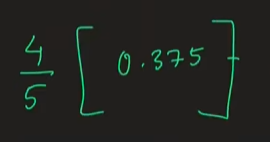 4/5 [ 0.375 ]